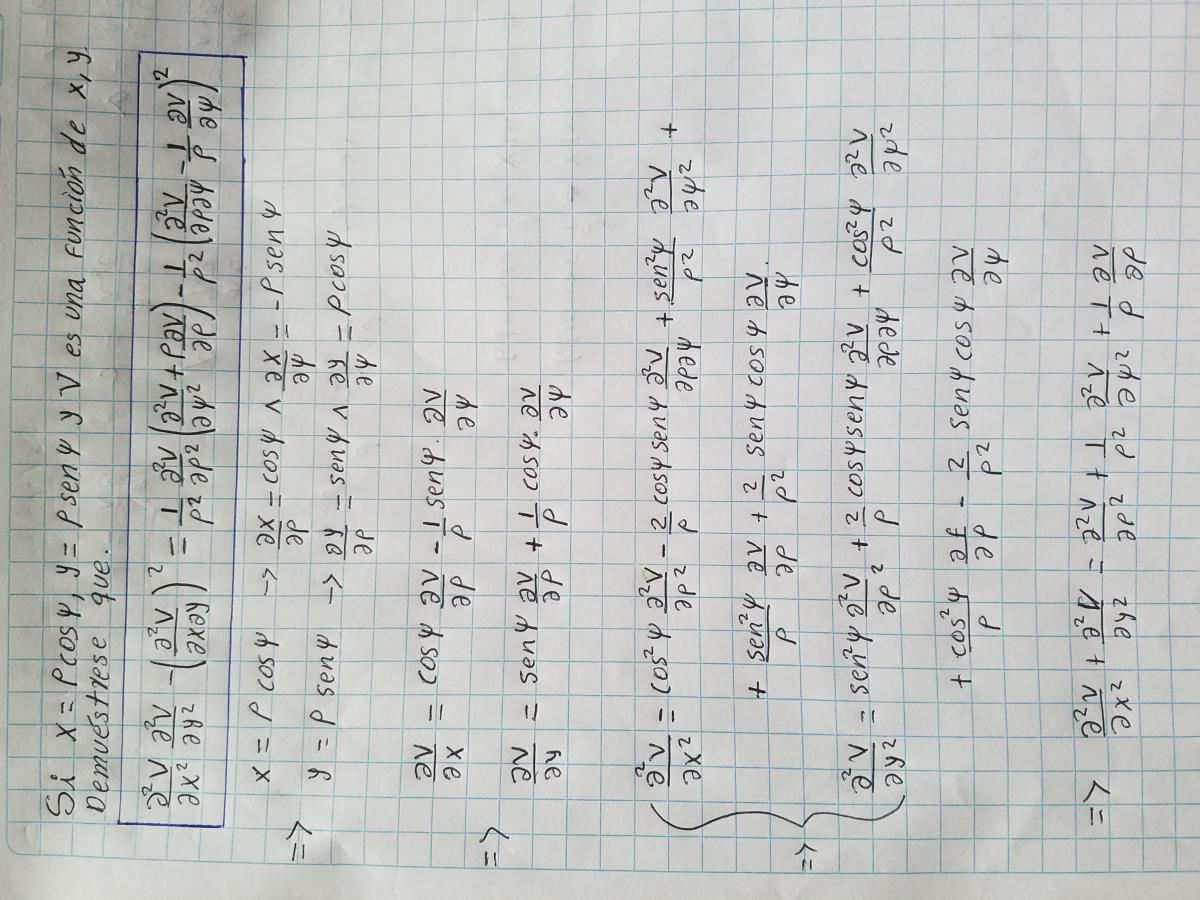 Si x = ρcosψ, y = ρ senψ y V es una función de x, y.
Demuéstrese que.
∂²V/∂x² ∂²V/∂y² - (∂²V/∂x∂y)² = 1/ρ² ∂²V/∂ρ² (∂²V/∂ψ² + ρ∂V/∂ρ) - 1/ρ² (∂²V/∂ρ∂ψ - 1/ρ ∂V/∂ψ)²
x = ρ cosψ -> ∂x/∂ρ = cosψ ∧ ∂x/∂ψ = -ρ senψ
=> y = ρ senψ -> ∂y/∂ρ = senψ ∧ ∂y/∂ψ = ρcosψ
∂V/∂x = cosψ ∂V/∂ρ - 1/ρ senψ. ∂V/∂ψ
=> ∂V/∂y = senψ ∂V/∂ρ + 1/ρ cosψ. ∂V/∂ψ
∂²V/∂x² = cos²ψ ∂²V/∂ρ² - 2/ρ cosψ senψ ∂²V/∂ρ∂ψ + sen²ψ/ρ² ∂²V/∂ψ² +
+ sen²ψ/ρ ∂V/∂ρ + 2/ρ² senψ cosψ ∂V/∂ψ.
=> ∂²V/∂y² = sen²ψ ∂²V/∂ρ² + 2/ρ cosψ senψ ∂²V/∂ρ∂ψ + cos²ψ/ρ² ∂²V/∂ψ²
+ cos²ψ/ρ ∂f/∂ρ - 2/ρ² senψ cosψ ∂V/∂ψ
=> ∂²V/∂x² + ∂²V/∂y² = ∂²V/∂ρ² + 1/ρ² ∂²V/∂ψ² + 1/ρ ∂V/∂ρ